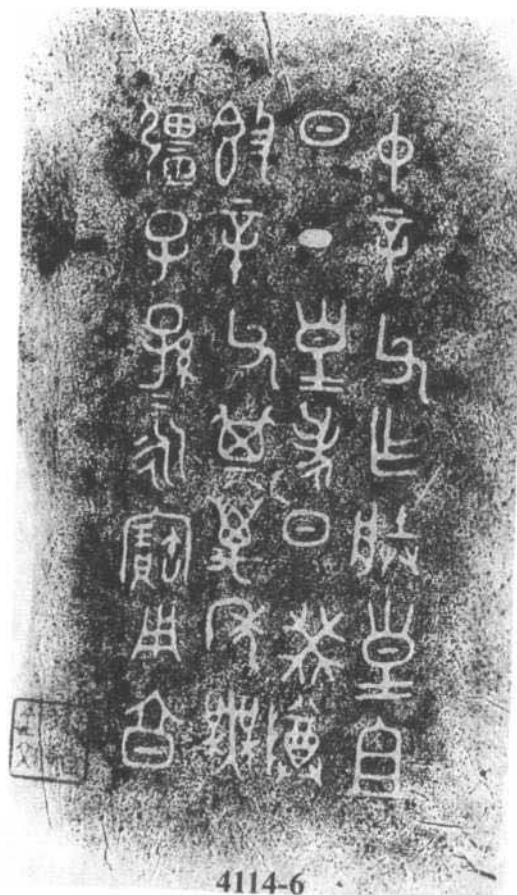 中辛父乍朕皇且
日丁皇考日癸尊
𣪘辛父其萬年無
彊子孫=永寶用亯
4114-6